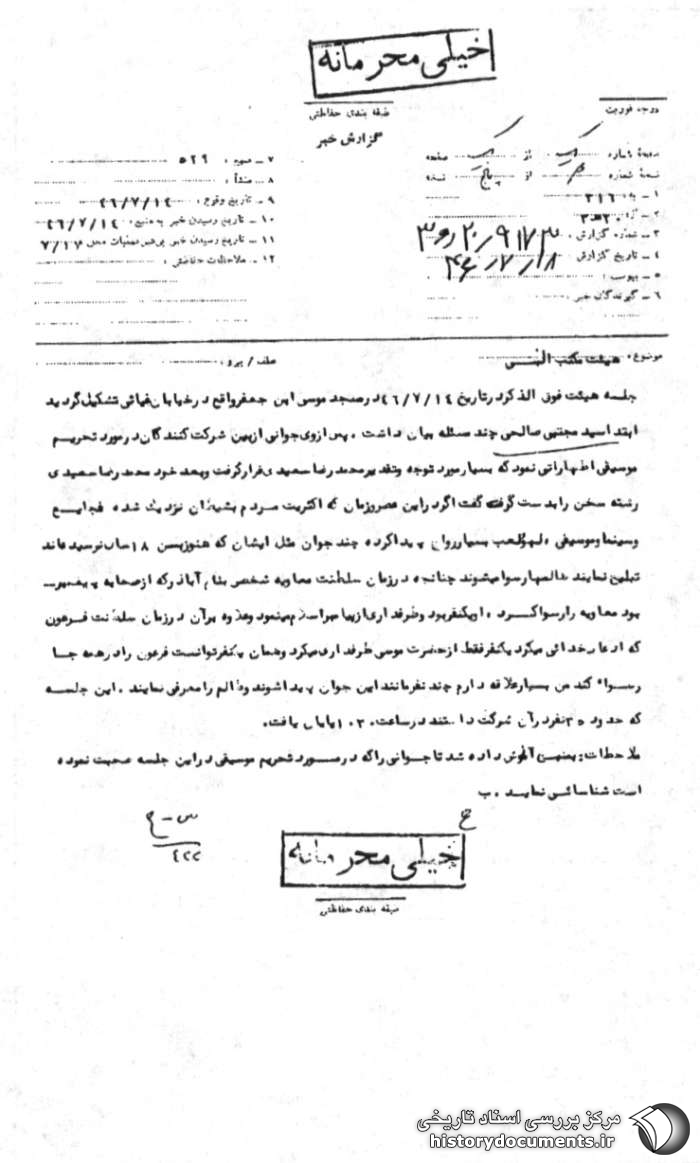 خیلی محرمانه
طبقه بندی حفاظتی
درجه فوریت
گزارش خبر
صفحهٔ شماره یک از یک صفحه
نسخهٔ شماره از پنج نسخه
۱ ـ به : ۳۱۶
۲ ـ از : ۲۰ هـ ۳
۳ ـ شماره گزارش : ۲۰/۹۱۷۳ هـ ۳
۴ ـ تاریخ گزارش : ۴۶/۷/۱۸
۵ ـ پیوست :
۶ ـ گیرندگان خبر :
۷ ـ منبع : ۵۲۹
۸ ـ منشأ :
۹ ـ تاریخ وقوع : ۴۶/۷/۱۴
۱۰ ـ تاریخ رسیدن خبر به منبع : ۴۶/۷/۱۴
۱۱ ـ تاریخ رسیدن خبر برهبر عملیات محل ۷/۱۷
۱۲ ـ ملاحظات حفاظتی :
موضوع : هیئت مکتب النبی
عطف / پیرو :
جلسه هیئت فوق الذکر در تاریخ ۴۶/۷/۱۴ در مسجد موسی ابن جعفر واقع در خیابان غیاثی تشکیل گردید
ابتدا سید مجتبی صالحی چند مسئله بیان داشت . پس از وی جوانی از بین شرکت کنندگان در مورد تحریم
موسیقی اظهاراتی نمود که بسیار مورد توجه و تقدیر محمد رضا سعیدی قرار گرفت و بعد خود محمد رضا سعیدی
رشته سخن را بدست گرفته گفت اگر در این عصر و زمان که اکثریت مردم بشیطان نزدیک شده فجایع
و سینما و موسیقی و لهو و لعب بسیار رواج پیدا کرده چند جوان مثل ایشان که هنوز بسن ۱۸ سال نرسیده اند
تبلیغ نمایند ظالمها رسوا میشوند چنانچه در زمان سلطنت معاویه شخصی بنام آباذر که از صحابه پیغمبر
بود معاویه را رسوا کرد . او یکنفر بود و طرفداری از پیامبر اسلام مینمود وعلاوه بر آن در زمان سلطنت فرعون
که ادعا ر خدائی میکرد یکنفر فقط از حضرت موسی طرفداری میکرد و همان یکنفر توانست فرعون را در همه جا
رسوا کند من بسیار علاقه دارم چند نفر مانند این جوان پیدا شوند و ظالم را معرفی نمایند . این جلسه
که حدود ۳۰ نفر در آن شرکت داشتند در ساعت ۱۰۳۰ پایان یافت .
ملاحظات : بمنبع آموزش داده شد تا جوانی را که در مورد تحریم موسیقی در این جلسه صحبت نموده
است شناسائی نماید . ب
ح
س - ح
۴۲۲
خیلی محرمانه
طبقه بندی حفاظتی
مرکز بررسی اسناد تاریخی
historydocuments.ir